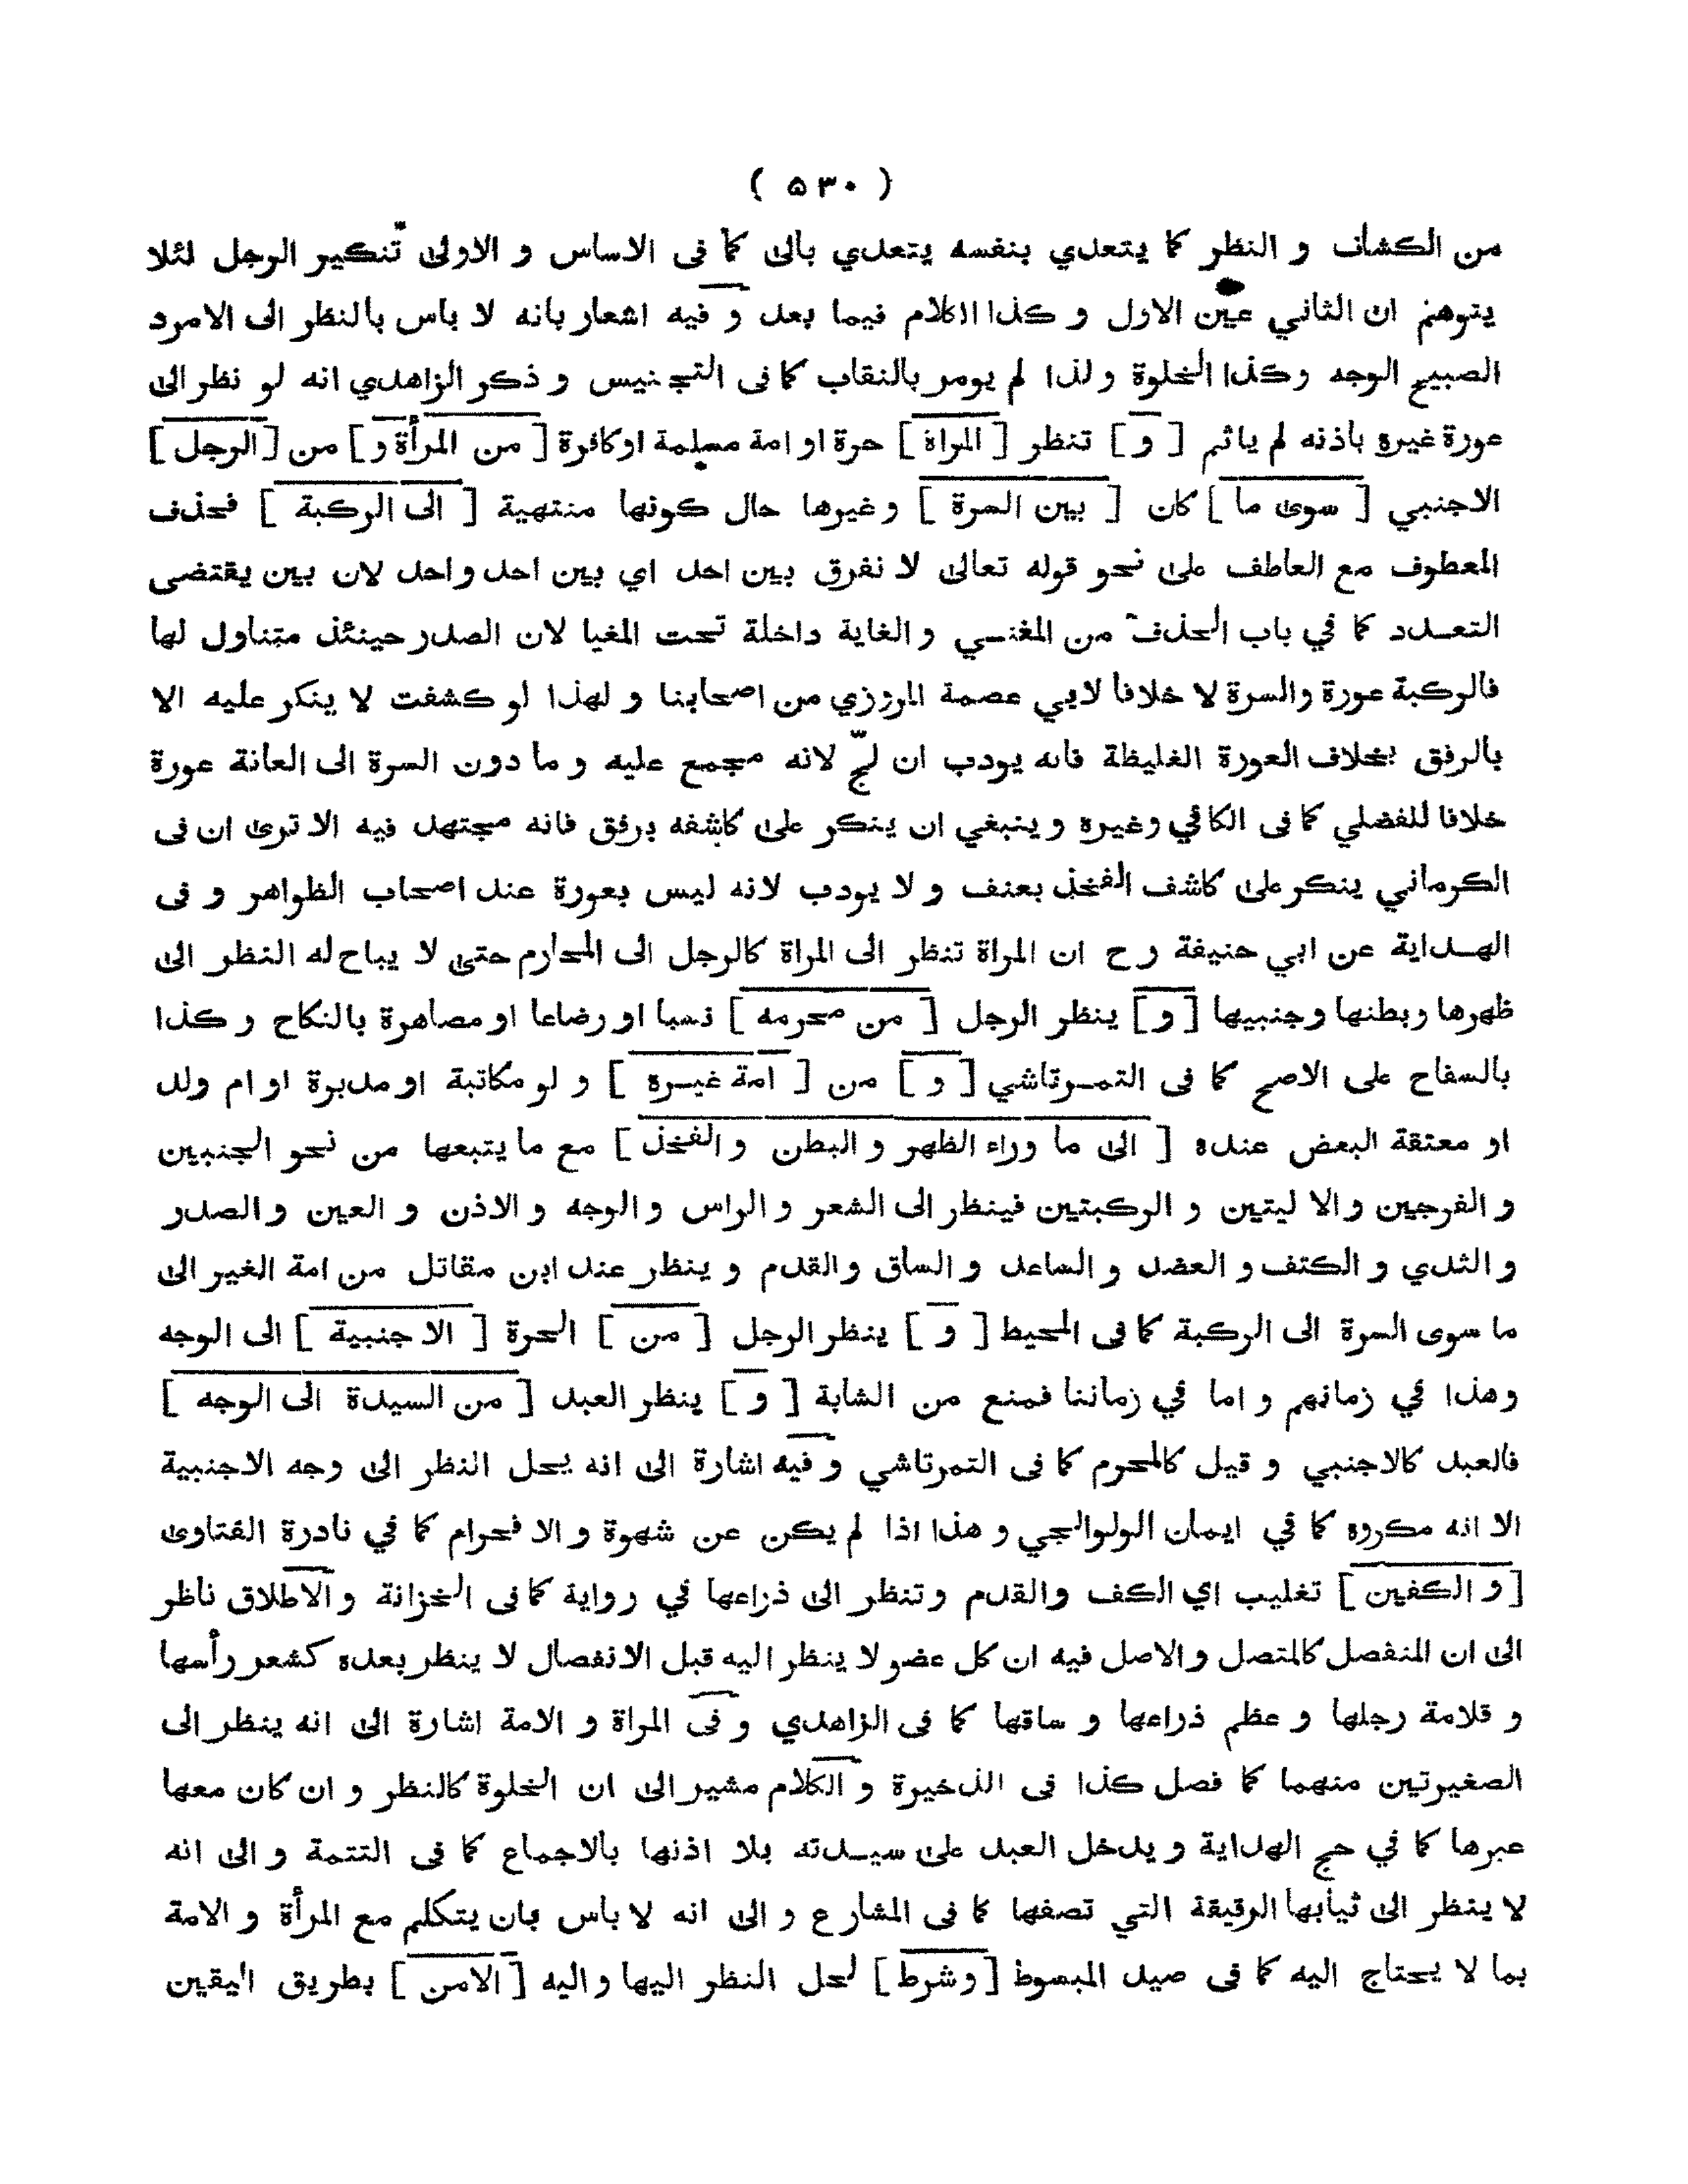 ( ٥٣٠ )
من الكشاف و النظر كما يتعدي بنفسه يتعدي بالى كما فى الاساس و الاولى تنكير الرجل لئلا
يتوهم ان الثاني عين الاول و كذا الكلام فيما بعد و فيه اشعار بانه لا باس بالنظر الى الامرد
الصبيح الوجه وكذا الخلوة ولذا لم يومر بالنقاب كما فى التجنيس و ذكر الزاهدي انه لو نظر الى
عورة غيره باذنه لم ياثم [ و ] تنظر [ المراة ] حرة او امة مسلمة او كافرة [ من المرأة و ] من [ الرجل ]
الاجنبي [ سوى ما ] كان [ بين السرة ] وغيرها حال كونها منتهية [ الى الركبة ] فحذف
المعطوف مع العاطف على نحو قوله تعالى لا نفرق بين احد اي بين احد واحد لان بين يقتضى
التعدد كما في باب الحذف من المغنى و الغاية داخلة تحت المغيا لان الصدر حينئذ متناول لها
فالركبة عورة والسرة لا خلافا لابي عصمة المروزي من اصحابنا و لهذا لو كشفت لا ينكر عليه الا
بالرفق بخلاف العورة الغليظة فانه يودب ان لجّ لانه مجمع عليه و ما دون السرة الى العانة عورة
خلافا للفضلي كما فى الكافي وغيره وينبغي ان ينكر على كاشفه برفق فانه مجتهد فيه الا ترى ان فى
الكرماني ينكر على كاشف الفخذ بعنف و لا يودب لانه ليس بعورة عند اصحاب الظواهر و فى
الهداية عن ابي حنيفة رح ان المراة تنظر الى المراة كالرجل الى المحارم حتى لا يباح له النظر الى
ظهرها وبطنها وجنبيها [ و ] ينظر الرجل [ من محرمه ] نسبا او رضاعا او مصاهرة بالنكاح و كذا
بالسفاح على الاصح كما فى التمرتاشي [ و ] من [ امة غيره ] و لو مكاتبة او مدبرة او ام ولد
او معتقة البعض عنده [ الى ما وراء الظهر و البطن و الفخذ ] مع ما يتبعها من نحو الجنبين
و الفرجين و الا ليتين و الركبتين فينظر الى الشعر و الراس و الوجه و الاذن و العين و الصدر
و الثدي و الكتف و العضد و الساعد و الساق و القدم و ينظر عند ابن مقاتل من امة الغير الى
ما سوى السرة الى الركبة كما فى المحيط [ و ] ينظر الرجل [ من ] الحرة [ الاجنبية ] الى الوجه
وهذا في زمانهم و اما في زماننا فمنع من الشابة [ و ] ينظر العبد [ من السيدة الى الوجه ]
فالعبد كالاجنبي و قيل كالمحرم كما فى التمرتاشي و فيه اشارة الى انه يحل النظر الى وجه الاجنبية
الا انه مكروه كما في ايمان الولوالجي و هذا اذا لم يكن عن شهوة و الا فحرام كما في نادرة الفتاوى
[ و الكفين ] تغليب اي الكف والقدم و تنظر الى ذراعها في رواية كما فى الخزانة و الاطلاق ناظر
الى ان المنفصل كالمتصل و الاصل فيه ان كل عضو لا ينظر اليه قبل الانفصال لا ينظر بعده كشعر رأسها
و قلامة رجلها و عظم ذراعها و ساقها كما فى الزاهدي و فى المراة و الامة اشارة الى انه ينظر الى
الصغيرتين منهما كما فصل كذا فى الذخيرة و الكلام مشير الى ان الخلوة كالنظر و ان كان معها
عبرها كما في حج الهداية و يدخل العبد على سيدته بلا اذنها بالاجماع كما فى التتمة و الى انه
لا ينظر الى ثيابها الرقيقة التي تصفها كما فى المشارع و الى انه لا باس بان يتكلم مع المرأة و الامة
بما لا يحتاج اليه كما فى صيد المبسوط [ وشرط ] لحل النظر اليها و اليه [ الامن ] بطريق اليقين